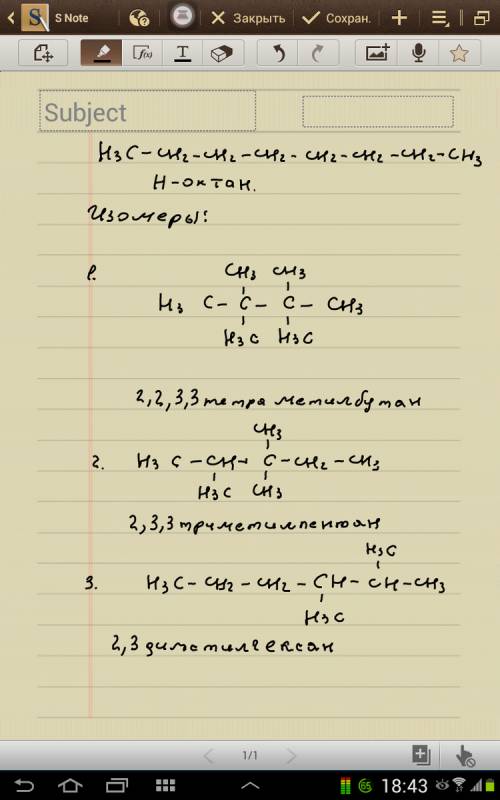 S Note
Закрыть
Сохран.
f(x)
T
Subject
H₃C-CH₂-CH₂-CH₂-CH₂-CH₂-CH₂-CH₃
Н-октан.
Изомеры:
1.
CH₃ CH₃
H₃ C-C-C-CH₃
H₃C H₃C
2,2,3,3 тетра метилбутан
CH₃
2. H₃ C-CH-C-CH₂-CH₃
H₃C CH₃
2,3,3 триметилпентан
H₃C
3. H₃C-CH₂-CH₂-CH-CH-CH₃
H₃C
2,3 диметилгексан
1/1
65
18:43